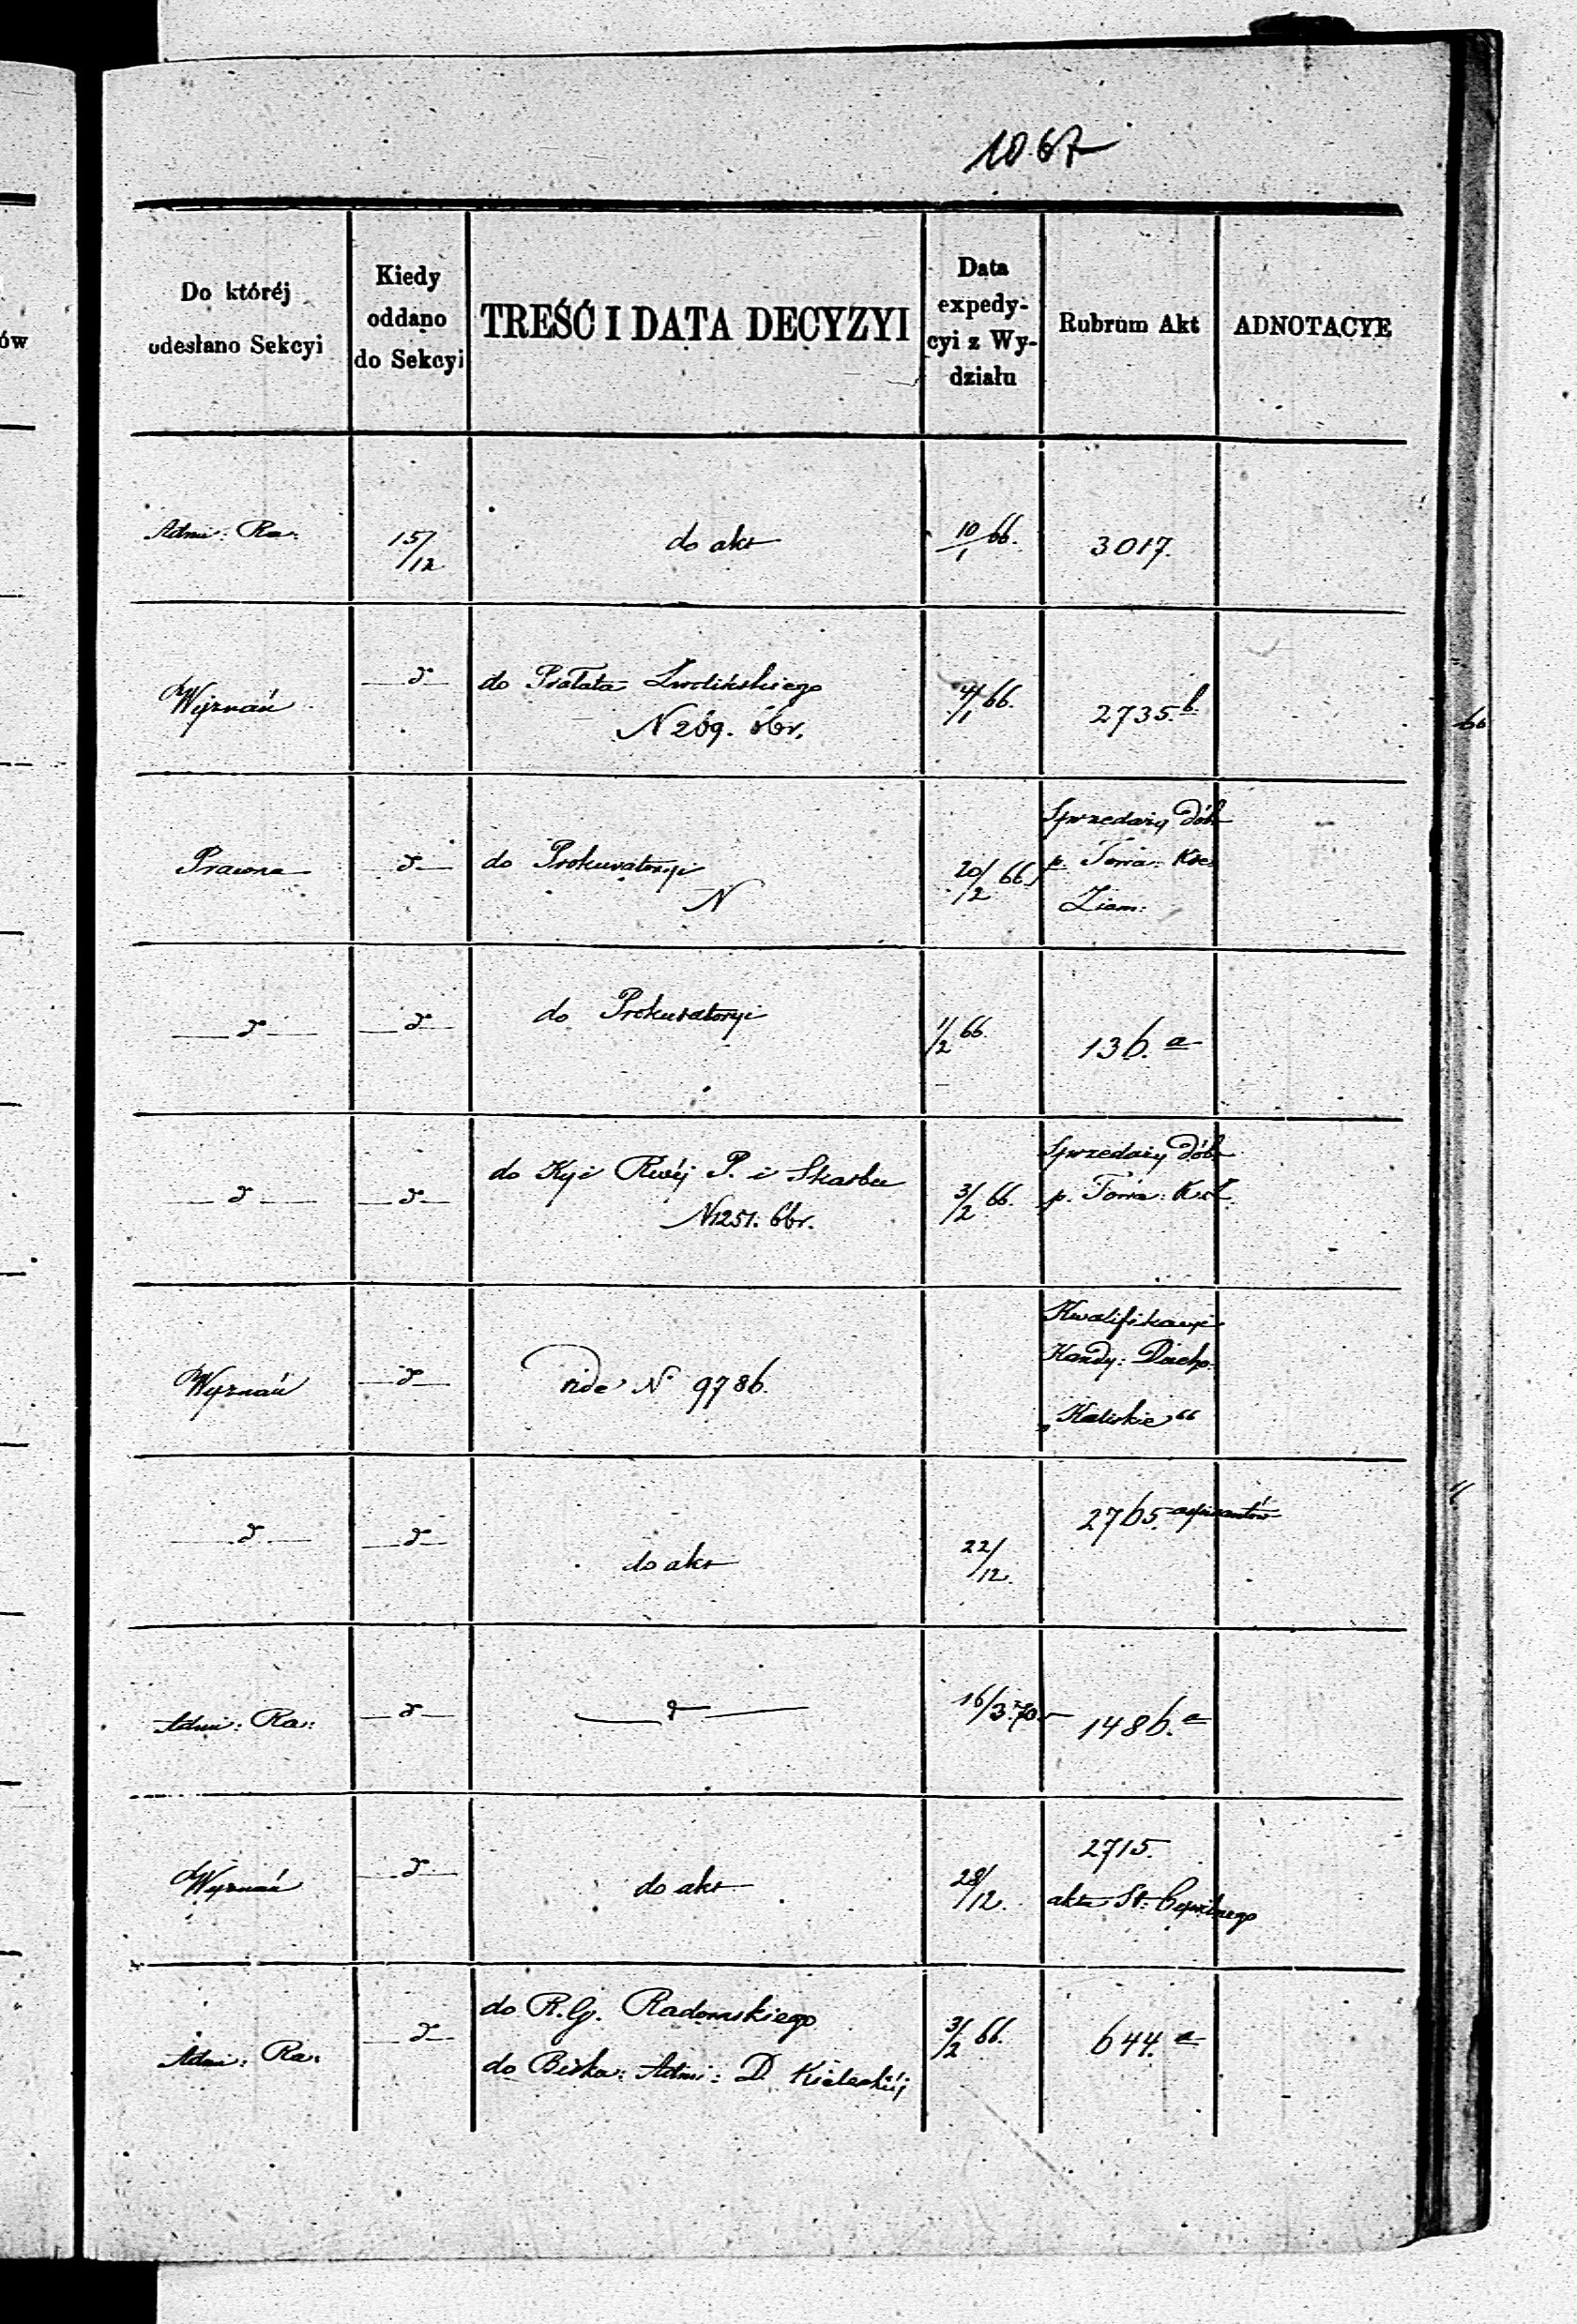 1067
Do któréj
odesłano Sekcyi
Kiedy
oddano
do Sekcyi
TREŚĆ I DATA DECYZYI
Data
expedy-
cyi z Wy-
działu
Rubrum Akt
ADNOTACYE
Admi: Ra:
15/12
do akt
10/1 66.
3017.
Wyznań
d
do Prałata
N 269. 66r.
4/1 66.
2735.b.
Prawna
d
do Prokuratoryi
N
20/2 66
Sprzedaży dóbr
p. Towa: Kre:
Ziem:
d
d
do Prokuratoryi
1/2 66.
136.a
d
d
do Kyi Rwéj P. i Skarbu
N1251. 66r.
3/2 66.
Sprzedaży dóbr
p. Towa:
Wyznań
d
vide N 9786.
Kwalifikacyi
Kandy: Duch:
„Kaliskie“
d
d
do akt
22/12.
2765. aspirantów
Admi: Ra:
d
d
16/3.70
1486.a
Wyznań
d
do akt
28/12.
2715.
akta St: Cywilnego
Admi: Ra:
d
do R.G. Radomskiego
do Bisku: Admi: D. Kieleckiéj
3/2 66.
644.a
ów